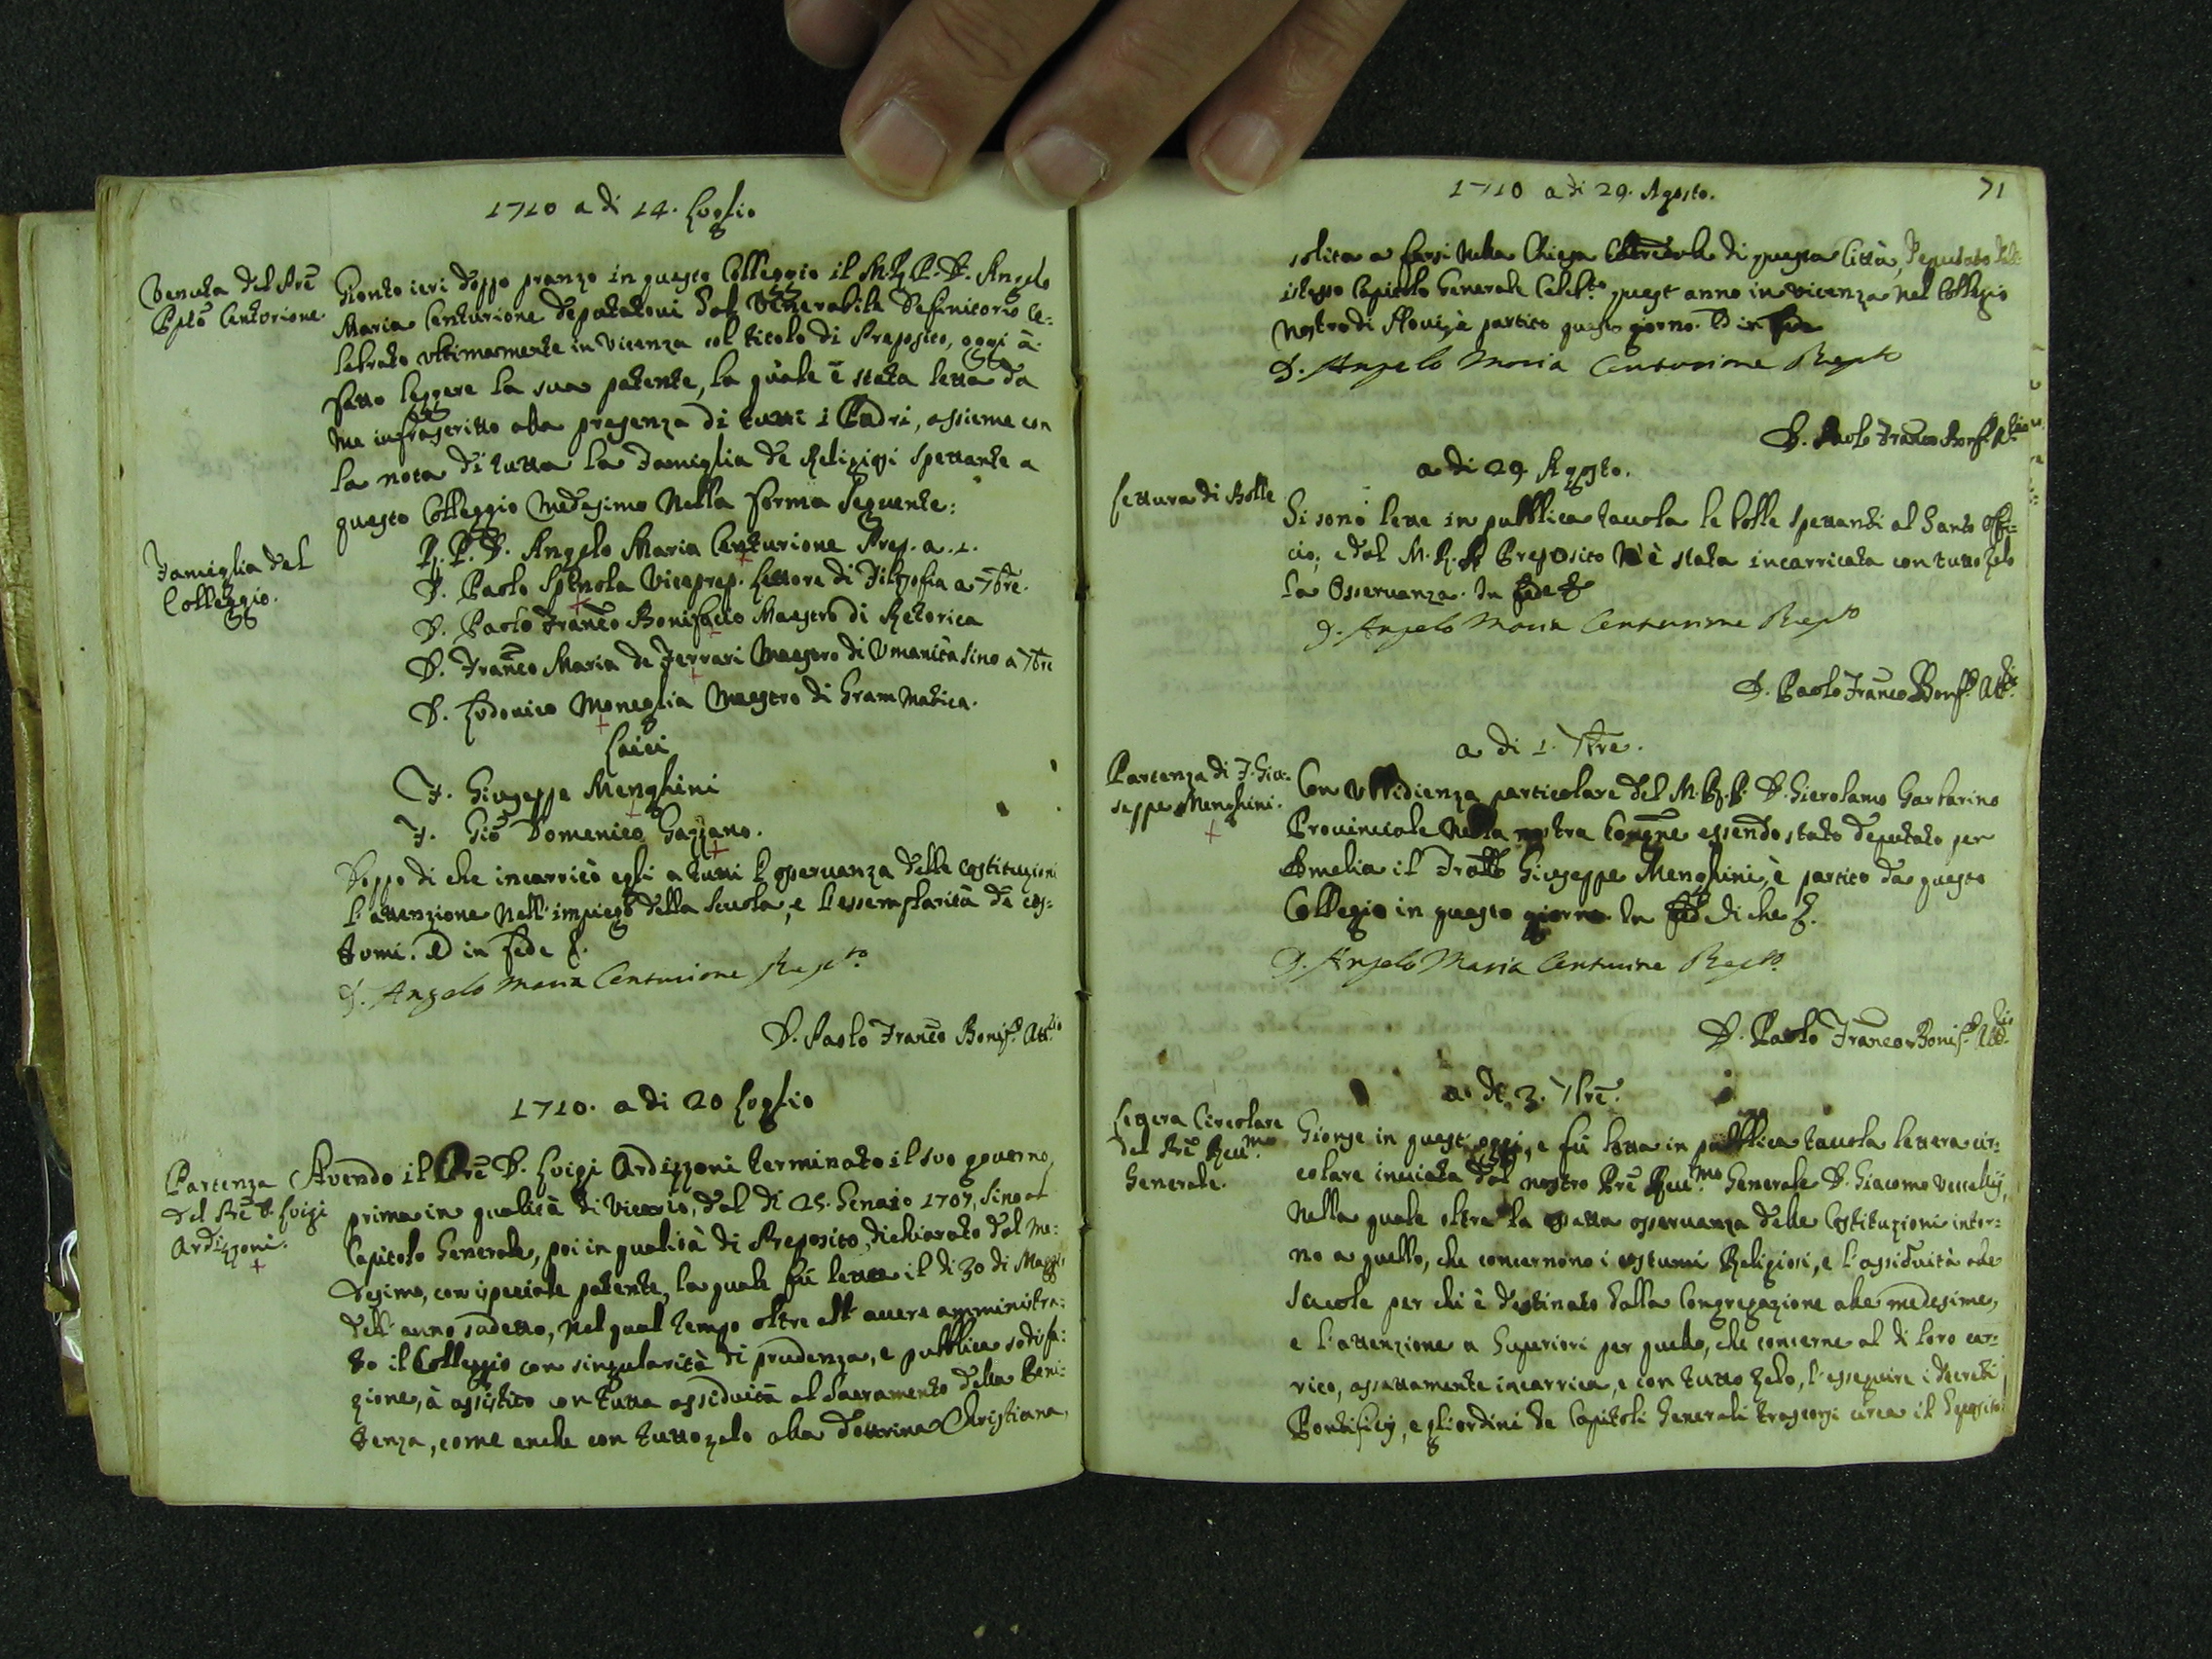 1710 a di 14. Luglio
Venuta del Prē
Pptō Centurione
Gionto ieri doppo pranzo in questo Colleggio il M.R.P.D. Angelo
Maria Centurione deputatoui dal Venerabile Definitorio Ce:
lebrato vltimamente in Vicenza col titolo di Preposito, oggi à
fatto leggere la sua patente, la quale è stata letta da
me infrascritto alla presenza di tutti i Padri, assieme con
la nota di tutta la Famiglia de Religiosi spettante a
questo Colleggio medesimo nella forma seguente:
Famiglia del
Colleggio.
R. P. D. Angelo Maria Centurione Prep. a. 1.
D. Paolo Spinola Viceprep. Lettore di Filosofia a 7bre.
D. Paolo Francō Bonifacio Maestro di Retorica
D. Francō Maria de Ferrari Maestro di Vmanità sino a 7bre
D. Lodouico Moneglia Maestro di Grammatica.
Laici
F. Giuseppe Menghini
F. Giō Domenico Gazzano.
Doppo di che incarricò egli a tutti l'osseruanza delle Costituzioni
l'attenzione nell'impiego della scuola, e l'essemplarità de cos:
tumi. Ed in fede &.
D. Angelo Maria Centurione Prepto
D. Paolo Francō Bonifo Attrio
1710. a di 20 Luglio
Partenza
del Prē D. Luigi
Ardizzoni.
Avendo il Prē D. Luigi Ardizzoni terminato il suo gouerno,
prima in qualità di Vicario, dal di 25. Genaio 1707, sino al
Capitolo Generale, poi in qualità di Preposito, dichiarato dal me:
desimo, con ispeciale patente, la quale fù letta il di 30 di Maggio
dell'anno sudetto, nel qual tempo oltre all' auere amministra:
to il Colleggio con singularità di prudenza, e pubblica sodisfa:
zione, à assistito con tutta assiduità al Sacramento della Peni:
tenza, come anche con tutto zelo alla Dottrina Christiana,
1710 a di 29. Agosto.
71
solita a farsi nella Chiesa Cattedrale di questa Città, Deputato dall'
istesso Capitolo Generale Celebto quest'anno in Vicenza nel Collegio
nostro di Noui, è partito questo giorno. Ed in fede
D. Angelo Maria Centurione Prepto
D. Paolo Francō Bonifo
a di 29 Agosto.
Lettura di Bolle
Si sono lette in pubblica tauola le bolle spettanti al Santo Offi:
cio, e dal M. R. P. Preposito n'è stata incarricata con tutto zelo
la Osseruanza. In fede &
D. Angelo Maria Centurione Prepto
D. Paolo Francō Bonifo Attrio
a di 1. 7bre.
Partenza di F. Giu:
seppe Menghini.
Con Vbbidienza particolare del M.R.P. D. Gierolamo Garbarino
Prouinciale nella nostra Congne essendo stato deputato per
Amelia il Frattō Giuseppe Menghini, è partito da questo
Collegio in questo giorno. In fede di che &.
D. Angelo Maria Centurione Prepto
D. Paolo Francō Bonifo Attrio
a di 3. 7brē.
Lettera Circolare
del Prē Reumo
Generale.
Gionse in questi oggi, e fù letta in pubblica tauola lettera cir:
colare inuiata dal nostro Prē Reumo Generale D. Giacomo Vecellij,
nella quale oltre la esatta osseruanza delle Costituzioni intor:
no a quello, che concernono i costumi Religiosi, e l'assiduità alle
scuole per chi è destinato dalla Congregazione alle medesime,
e l'attenzione a Superiori per quello, che concerne al di loro car:
rico, assattamente incarrica, e con tutto zelo, l'esseguire i decreti
Pontificij, e gli ordini de Capitoli Generali trascorsi circa il